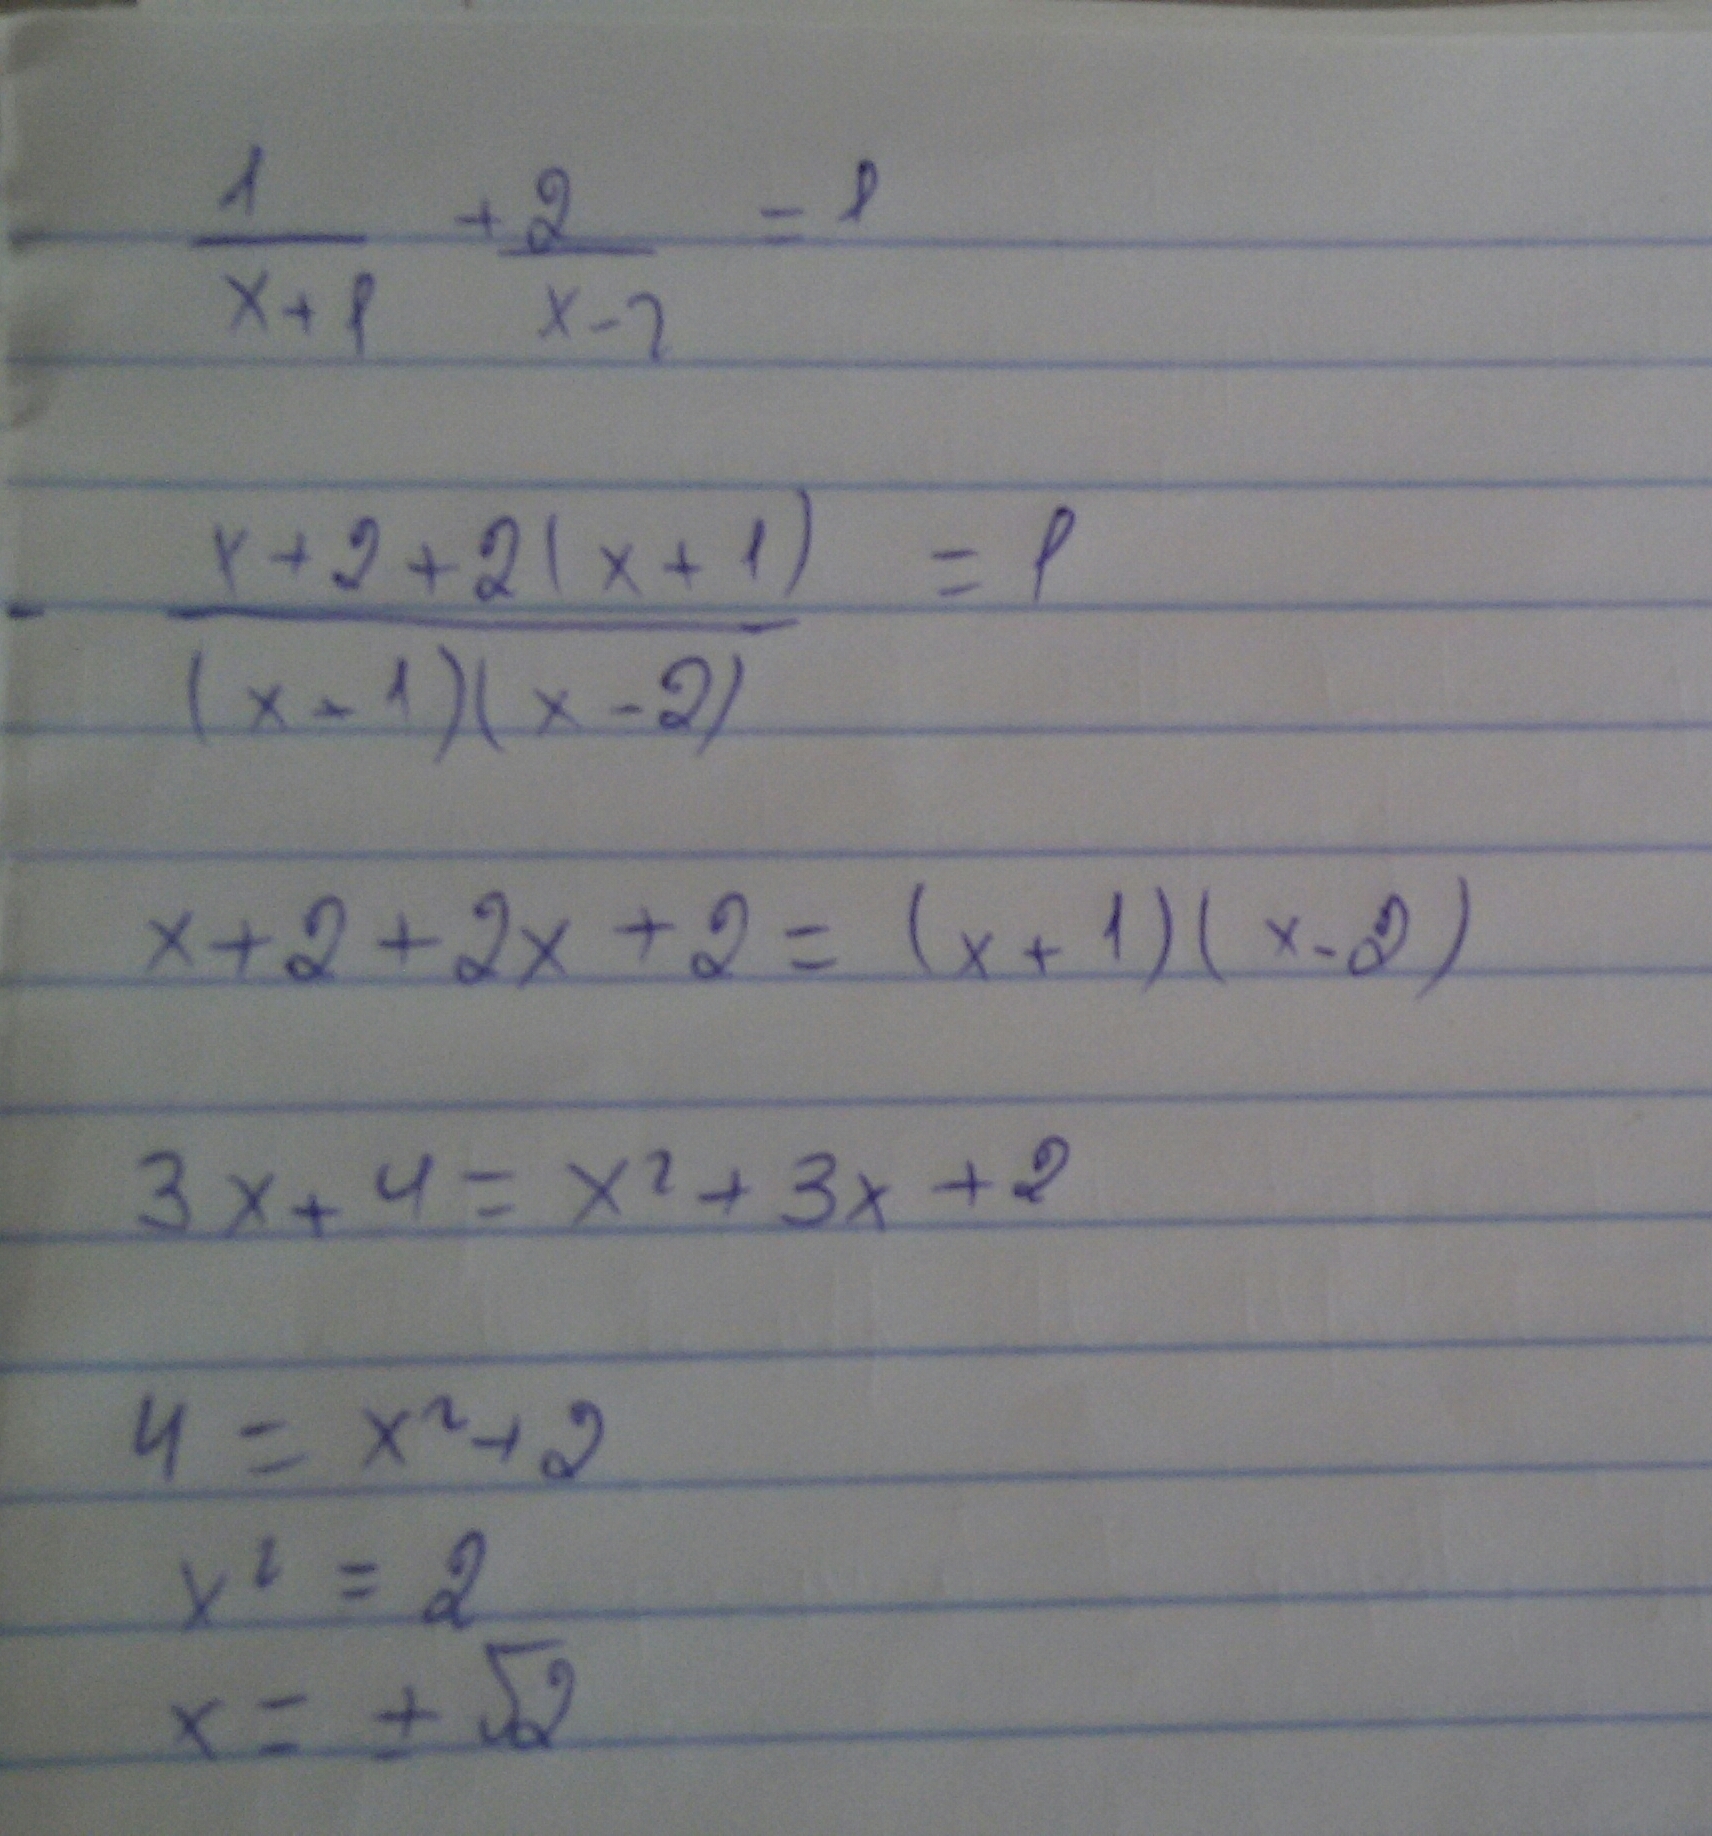 1/(x+1) + 2/(x-2) = 1
(x+2+2(x+1))/((x-1)(x-2)) = 1
x+2+2x+2=(x+1)(x-2)
3x+4=x²+3x+2
4=x²+2
x²=2
x=±√2